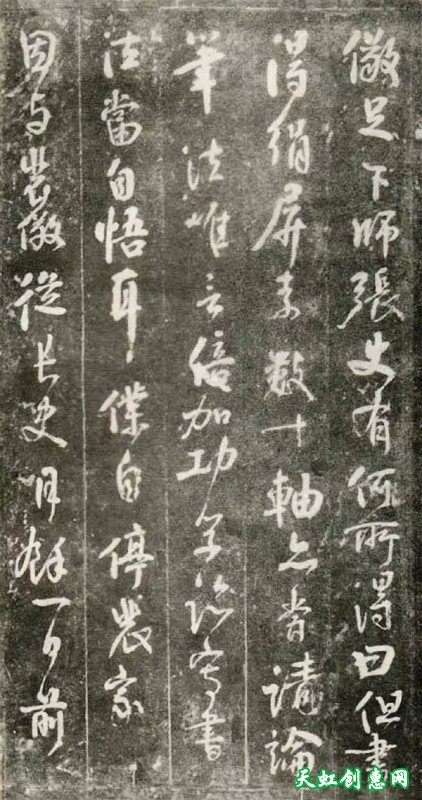 儆足下師張史有何所得曰但書
得絹屏素數十軸亦嘗請論
筆法惟言倍加功學臨寫書
法當自悟耳僕自停裴家
因与裴儆從長史餘一日前
天虹创意网